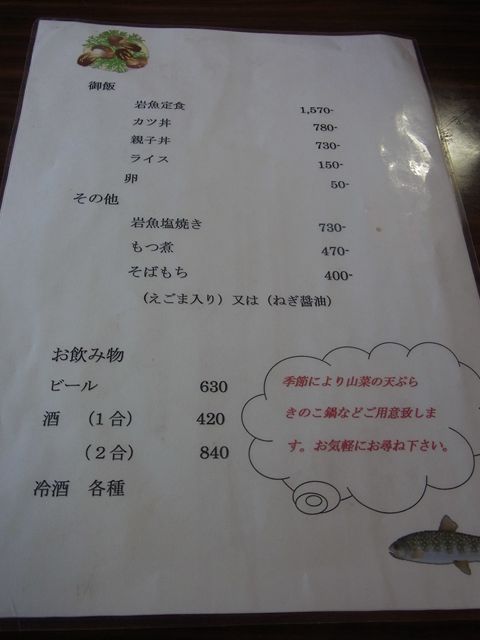 御飯
岩魚定食 1,570-
カツ丼 780-
親子丼 730-
ライス 150-
卵 50-
その他
岩魚塩焼き 730-
もつ煮 470-
そばもち 400-
（えごま入り）又は（ねぎ醤油）
お飲み物
ビール 630
酒 （1合） 420
（2合） 840
冷酒 各種
季節により山菜の天ぷら
きのこ鍋などご用意致しま
す。お気軽にお尋ね下さい。